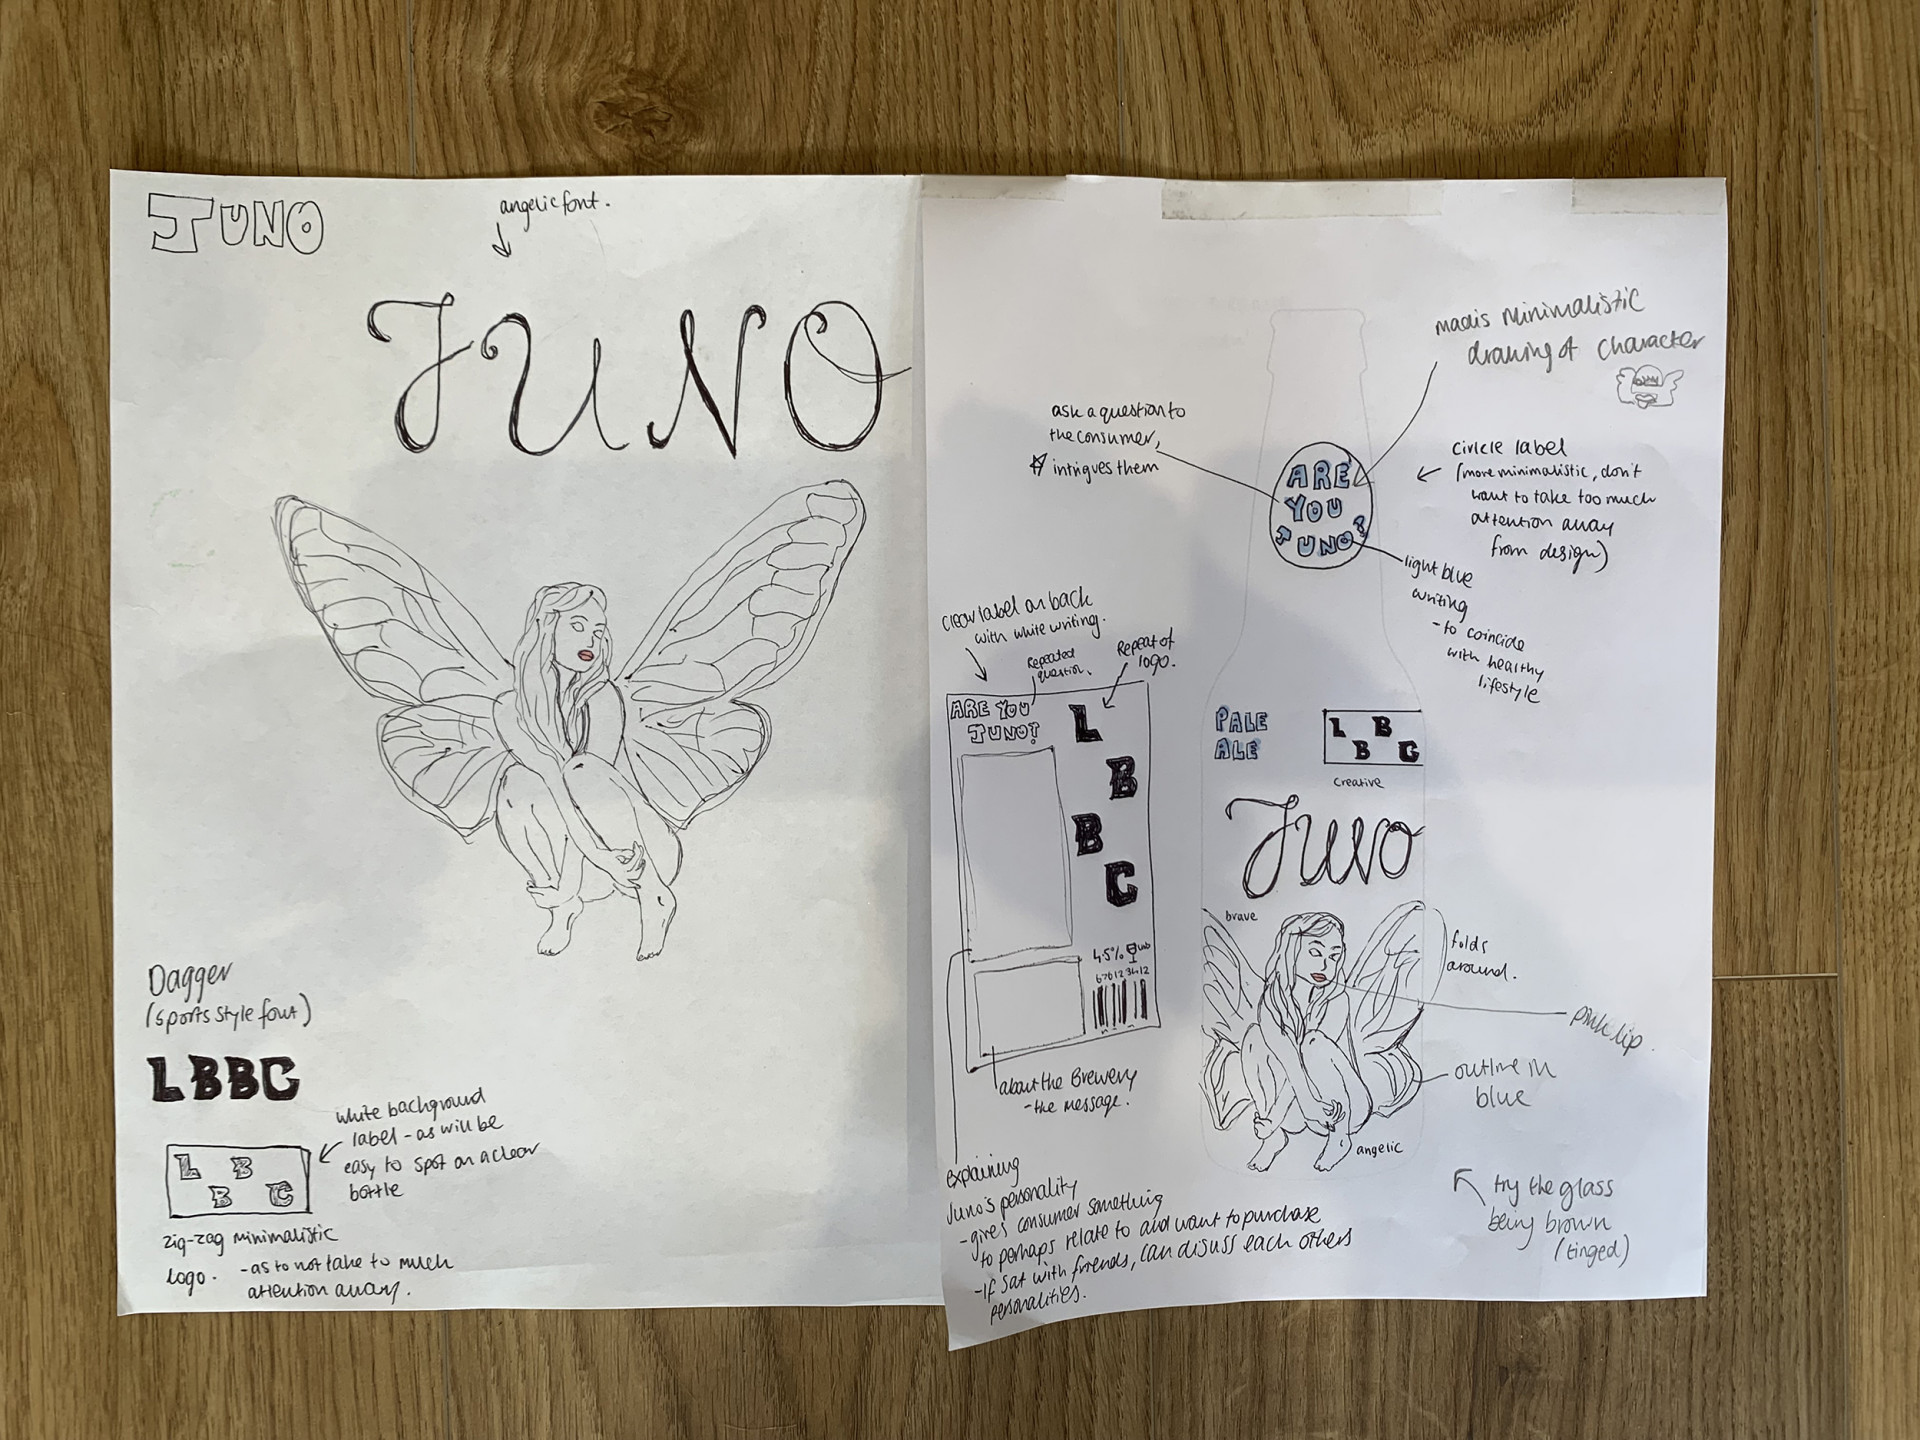 JUNO
angelic font.
JUNO
Dagger
(sports style font)
LBBC
white background
label - as will be
easy to spot on a clear
bottle
L B
B C
zig-zag minimalistic
logo. - as to not take to much
attention away.
madis minimalistic
drawing of character
ask a question to
the consumer,
intrigues them
ARE
YOU
JUNO?
circle label
(more minimalistic, don't
want to take too much
attention away
from design)
light blue
writing
- to coincide
with healthy
lifestyle
clear label on back
with white writing.
Repeated
question.
Repeat of
logo.
ARE YOU
JUNO?
L
B
B
C
4.5%
about the Brewery
- the message.
PALE
ALE
L B
B C
creative
JUNO
brave
folds
around.
pink lip.
outline in
blue
angelic
try the glass
being brown
(tinged)
explaining
Juno's personality
- gives consumer something
to perhaps relate to and want to purchase
- If sat with friends, can disuss each others
personalities.